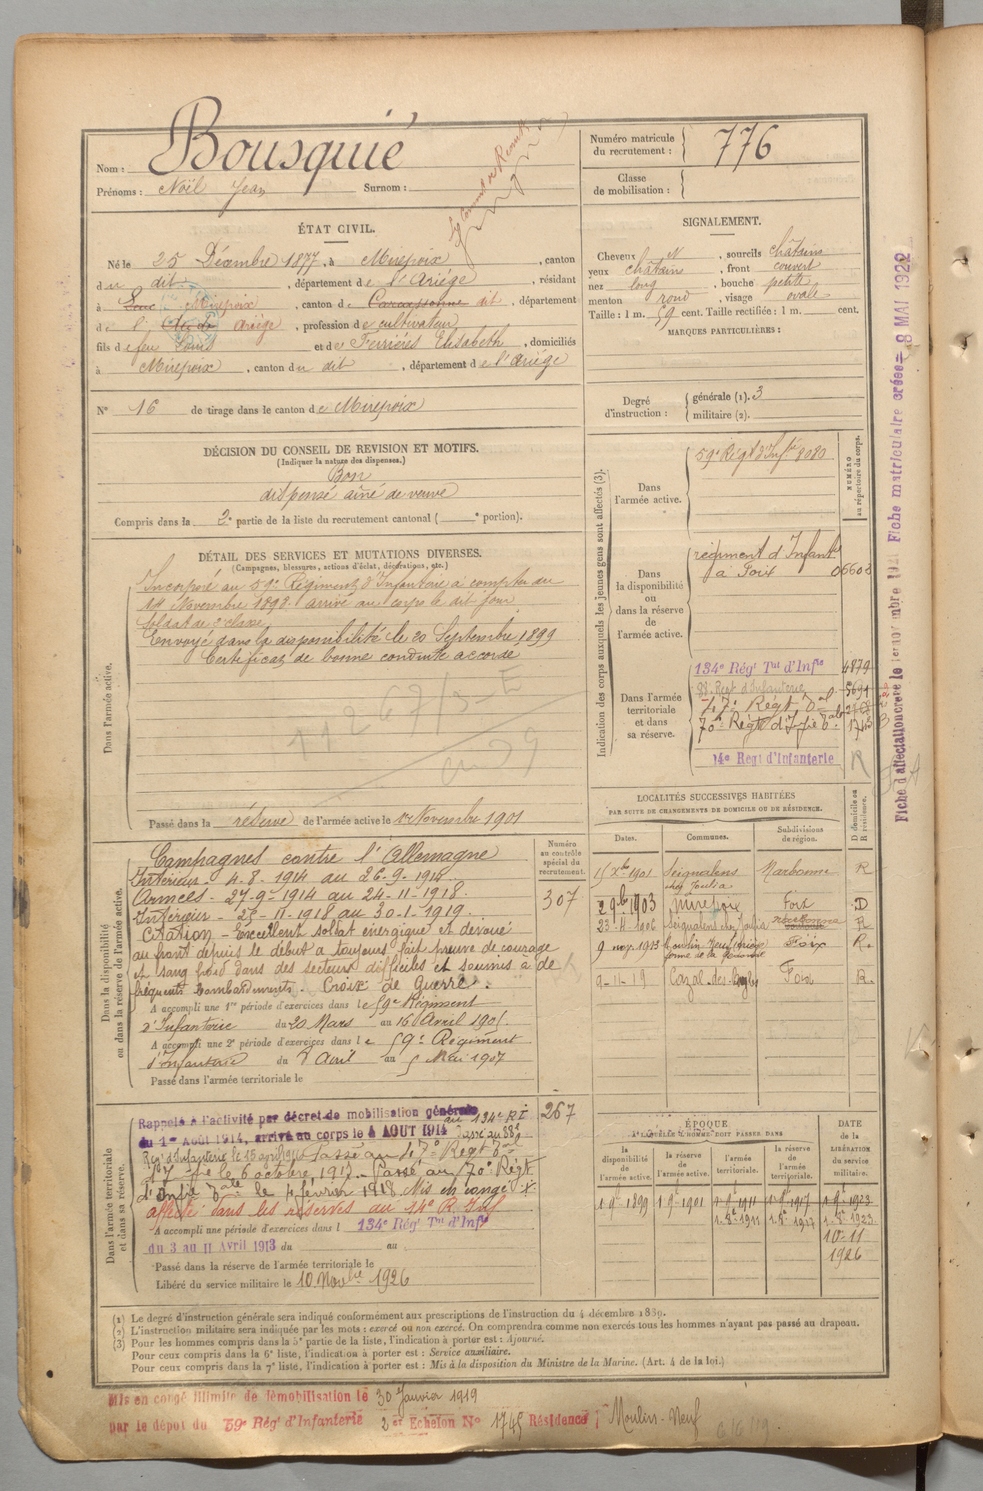 Nom : Bousquié
Prénoms : Noël Jean Surnom :
Numéro matricule du recrutement : 776
Classe de mobilisation :
ÉTAT CIVIL.
Né le 25 Décembre 1877, à Mirepoix, canton
du dit, département de l'Ariège, résidant
à Mirepoix, canton de Carcassonne dit, département
de l' Aude Ariège, profession de cultivateur
fils de feu Louis et de Ferriès Elisabeth, domiciliés
à Mirepoix, canton du dit, département de l'Ariège
N° 16 de tirage dans le canton de Mirepoix
SIGNALEMENT.
Cheveux et, sourcils châtains
yeux châtains, front couvert
nez long, bouche petite
menton rond, visage ovale
Taille : 1 m. 59 cent. Taille rectifiée : 1 m. cent.
MARQUES PARTICULIÈRES :
Degré d'instruction : générale (1). 3
militaire (2).
DÉCISION DU CONSEIL DE REVISION ET MOTIFS.
(Indiquer la nature des dispenses.)
Bon
dispensé aîné de veuve
Compris dans la 2e partie de la liste du recrutement cantonal ( e portion).
DÉTAIL DES SERVICES ET MUTATIONS DIVERSES.
(Campagnes, blessures, actions d'éclat, décorations, etc.)
Dans l'armée active.
Incorporé au 59e Régiment d'Infanterie à compter du
1er Novembre 1898 arrivé au corps le dit jour
Soldat de 2e classe
Envoyé dans la disponibilité le 20 Septembre 1899
Certificat de bonne conduite accordé
Passé dans la réserve de l'armée active le 1er Novembre 1901
Indication des corps auxquels les jeunes gens sont affectés (3).
NUMÉRO au répertoire du corps.
Dans l'armée active.
59e Régt d'Infie 8080
Dans la disponibilité ou dans la réserve de l'armée active.
régiment d'Infantie
à Foix 05608
Dans l'armée territoriale et dans sa réserve.
134e Régt Tal d'Infie 4879
88e Régt d'Infanterie 5691
70e Régt d'Infie 1743
14e Régt d'Infanterie R
Dans la disponibilité ou dans la réserve de l'armée active.
Numéro au contrôle spécial du recrutement.
307
Campagnes contre l'Allemagne
Intérieur - 4-8-1914 au 26-9-1914
Armées - 27-9-1914 au 24-11-1918.
Intérieur - 25-11-1918 au 30-1-1919.
Citation - Excellent soldat énergique et dévoué
au front depuis le début a toujours fait preuve de courage
et sang froid dans des secteurs difficiles et soumis à de
fréquents bombardements. Croix de Guerre.
A accompli une 1re période d'exercices dans le 59e Régiment
d'Infanterie du 20 Mars au 16 Avril 1905
A accompli une 2e période d'exercices dans le 59e Régiment
d'Infanterie du 8 Avril au 5 Mai 1907
Passé dans l'armée territoriale le
LOCALITÉS SUCCESSIVES HABITÉES
PAR SUITE DE CHANGEMENTS DE DOMICILE OU DE RÉSIDENCE.
Dates. Communes. Subdivisions de région. D domicile ou R résidence.
15 Xbre 1901 Seignalens Narbonne R
2 9bre 1903 Mirepoix Foix D
23-4-1906 Seignalens Narbonne R
9 nov. 1913 Foix R.
9-11-19 Cazal-des-Bayles Foix R.
Dans l'armée territoriale et dans sa réserve.
267
Rappelé à l'activité par décret de mobilisation générale
du 1er Août 1914, arrivé au corps le 4 AOUT 1914 au 134e RI
Passé au 88e
Régt d'Infanterie Passé au Régt
le 6 octobre 1917. Passé au 70e Régt
d'Infie le 4 février 1918 Mis en congé x
affecté dans les réserves au 14e R. Inf
A accompli une période d'exercices dans l 134e Régt Tal d'Infie
du 3 au 11 Avril 1913 du au
Passé dans la réserve de l'armée territoriale le
Libéré du service militaire le 10 Novbre 1926
ÉPOQUE
A LAQUELLE L'HOMME DOIT PASSER DANS
la disponibilité de l'armée active. la réserve de l'armée active. l'armée territoriale. la réserve de l'armée territoriale.
DATE de la LIBÉRATION du service militaire.
1 9bre 1899 1 9bre 1901 1 9bre 1911 1 9bre 1917 1 9bre 1923
1.8bre 1911 1.8bre 1917 1.8bre 1923
10-11
1926
(1) Le degré d'instruction générale sera indiqué conformément aux prescriptions de l'instruction du 4 décembre 1889.
(2) L'instruction militaire sera indiquée par les mots : exercé ou non exercé. On comprendra comme non exercés tous les hommes n'ayant pas passé au drapeau.
(3) Pour les hommes compris dans la 5e partie de la liste, l'indication à porter est : Ajourné.
Pour ceux compris dans la 6e liste, l'indication à porter est : Service auxiliaire.
Pour ceux compris dans la 7e liste, l'indication à porter est : Mis à la disposition du Ministre de la Marine. (Art. 4 de la loi.)
Mis en congé illimité de démobilisation le 30 Janvier 1919
par le dépôt du 59e Régt d'Infanterie 2e Echelon No 1745 Résidence Moulin-Neuf
Fiche matriculaire créée = 9 MAI 1922